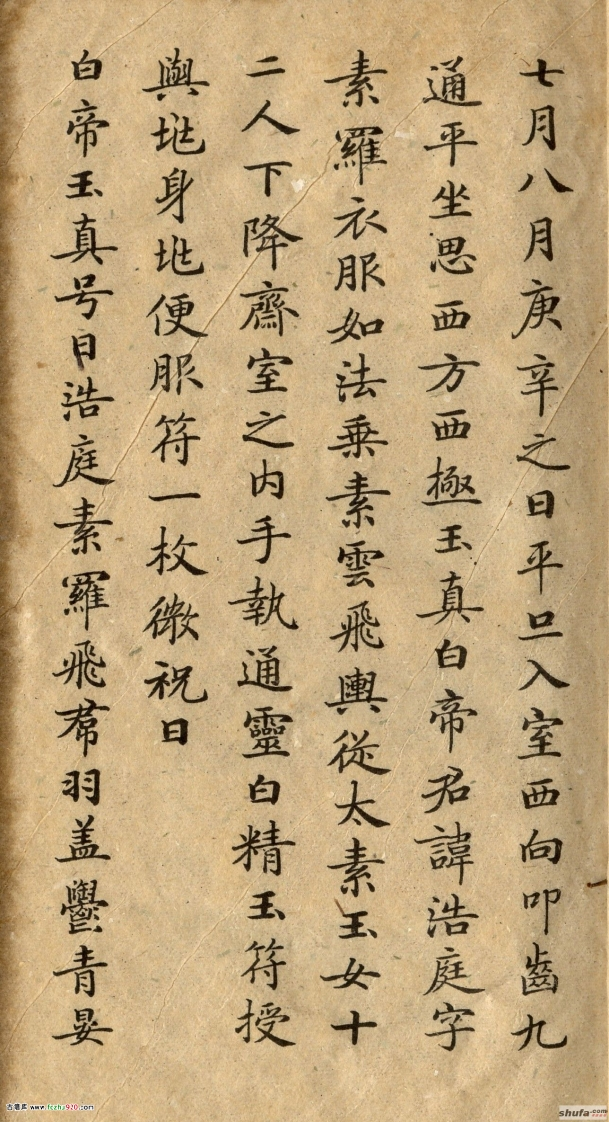 七月八月庚辛之日平旦入室西向叩齒九
通平坐思西方西極玉真白帝君諱浩庭字
素羅衣服如法乗素雲飛輿從太素玉女十
二人下降齋室之内手執通靈白精玉符授
與兆身兆便服符一枚微祝曰
白帝玉真号曰浩庭素羅飛帬羽盖鬱青晏
古墨库 www.fczhu920.com
shufa.com